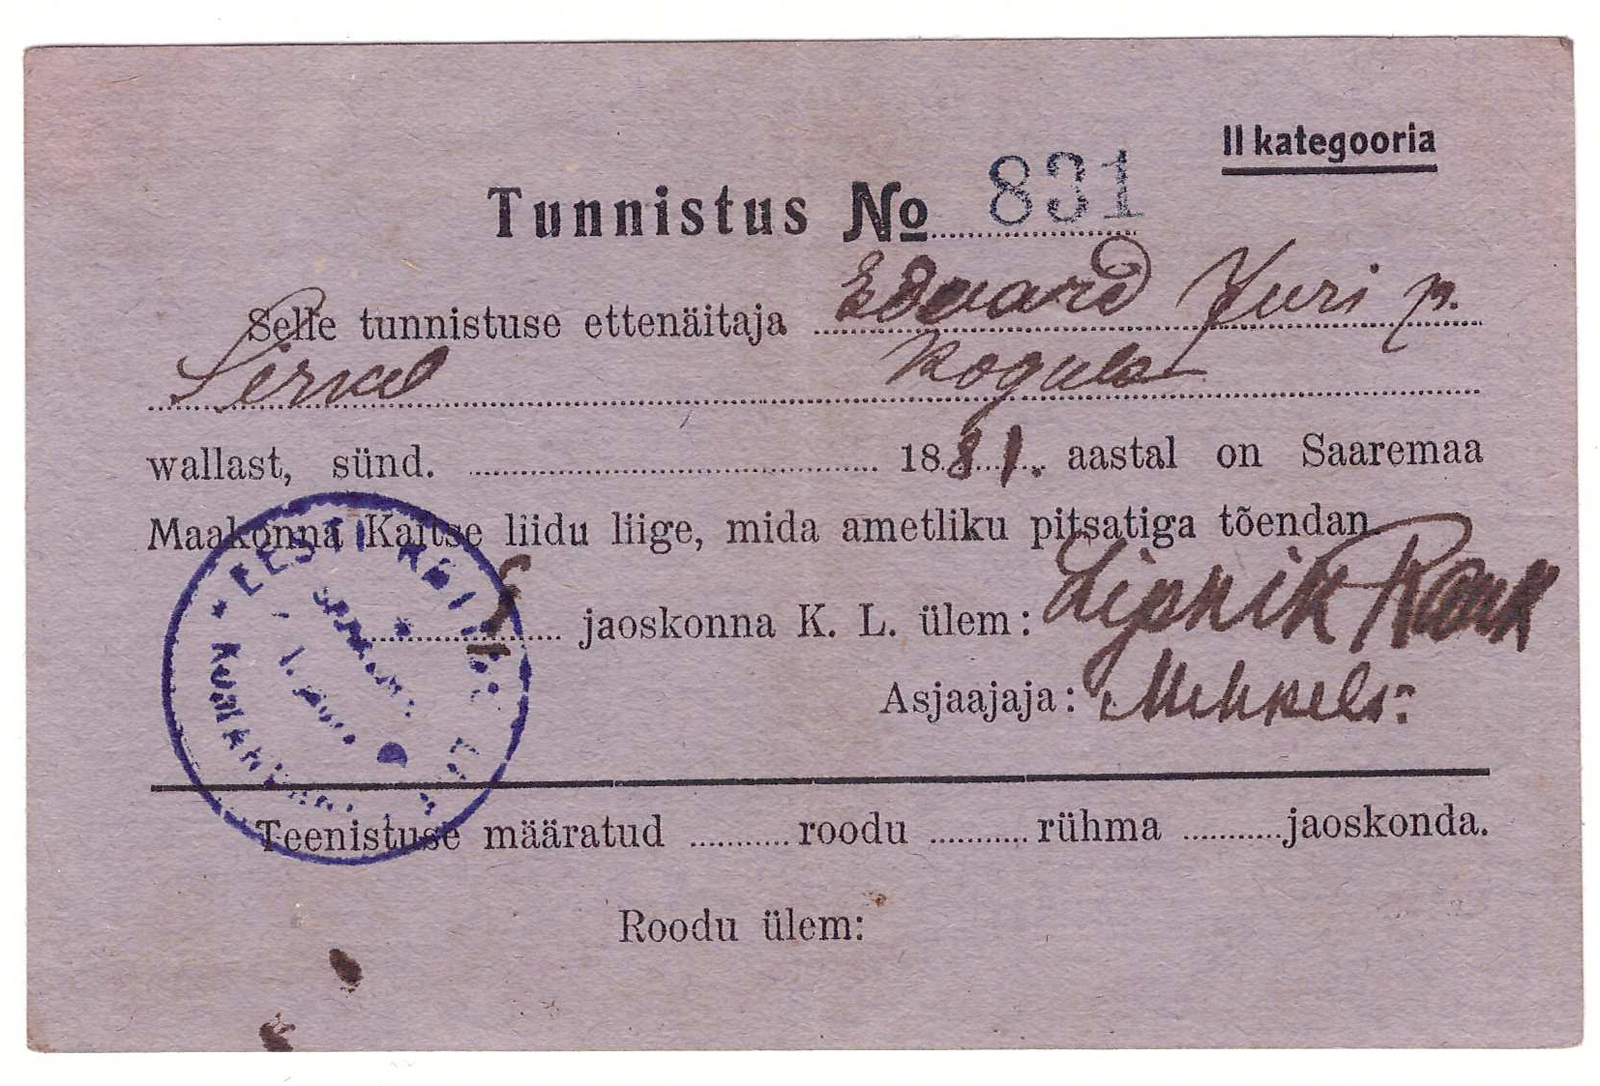 II kategooria
Tunnistus No 831
Selle tunnistuse ettenäitaja Eduard Juri p.
Kogula
wallast, sünd. 1881. aastal on Saaremaa
Maakonna Kaitse liidu liige, mida ametliku pitsatiga tõendan
jaoskonna K. L. ülem: Lipnik
Asjaajaja:
EESTI KAITSE
Teenistuse määratud roodu rühma jaoskonda.
Roodu ülem: